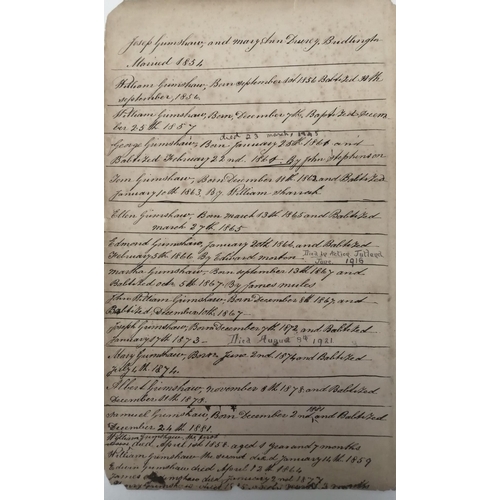 Josep Grimshaw, and mary Ann Drury, Bridlington
Maried 1854
William Grimshaw, Born september 1st 1856 Babtized 20th
september, 1856.
William Grimshaw, Born, December 7th, Baptized Decem
ber 25th 1857
died 23 march 1945
George Grimshaw, Born January 25th 1860 and
Babtized February 22nd 1860 By John Stephenson
Tom Grimshaw, Born December 11th 1862 and Babtized
January 10th 1863 By William
Ellen Grimshaw, Born march 13th 1865 and Babtized
march 27th 1865
Edmond Grimshaw, January 20th 1866 and Babtized
February 5th 1866 By Edward morton - Died in Action Jutland
June 1916
martha Grimshaw, Born september 13th 1867 and
Babtized octr 5th 1867 By James miles
John William Grimshaw, Born December 8th 1867 and
Babtized, December 10th 1867
Joseph Grimshaw, Born December 7th 1872, and Babtized
January 5th 1873 - Died August 3rd 1921
Mary Grimshaw, Born June 2nd 1874 and Babtized
July 4th 1874.
Albert Grimshaw, november 8th 1878 and Babtized
December 11th 1878.
Samuel Grimshaw, Born December 2nd 1881 and Babtized
December 24th 1881.
William Grimshaw the first
died April 10th 1858 aged 1 year and 7 months
William Grimshaw the second died January 14th 1859
Edwin Grimshaw died April 12th 1864
James died January 2nd 1877
Grimshaw died months